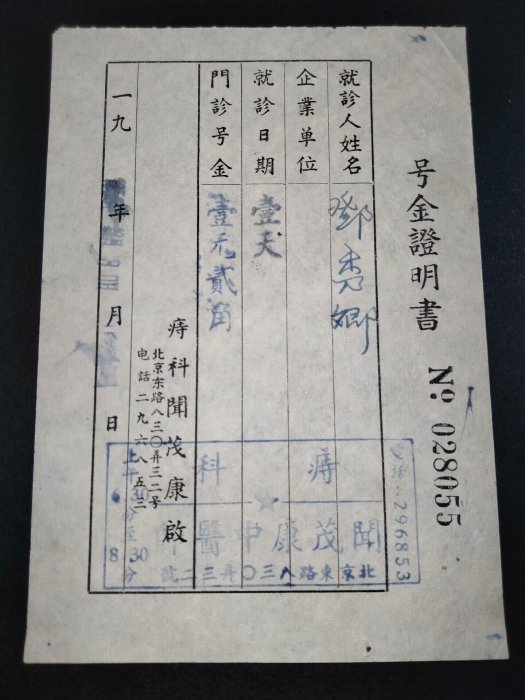 号金證明書
No 028055
就診人姓名 鄧秀卿
企業单位
就診日期 壹天
門診号金 壹元貳角
痔科聞茂康啟
北京东路八三〇弄三二号
电話二九六八五三
一九 年 月 日
痔科
聞茂康中醫師
北京東路八三〇弄三二號
電話:296853
上午
30分至
8 30分